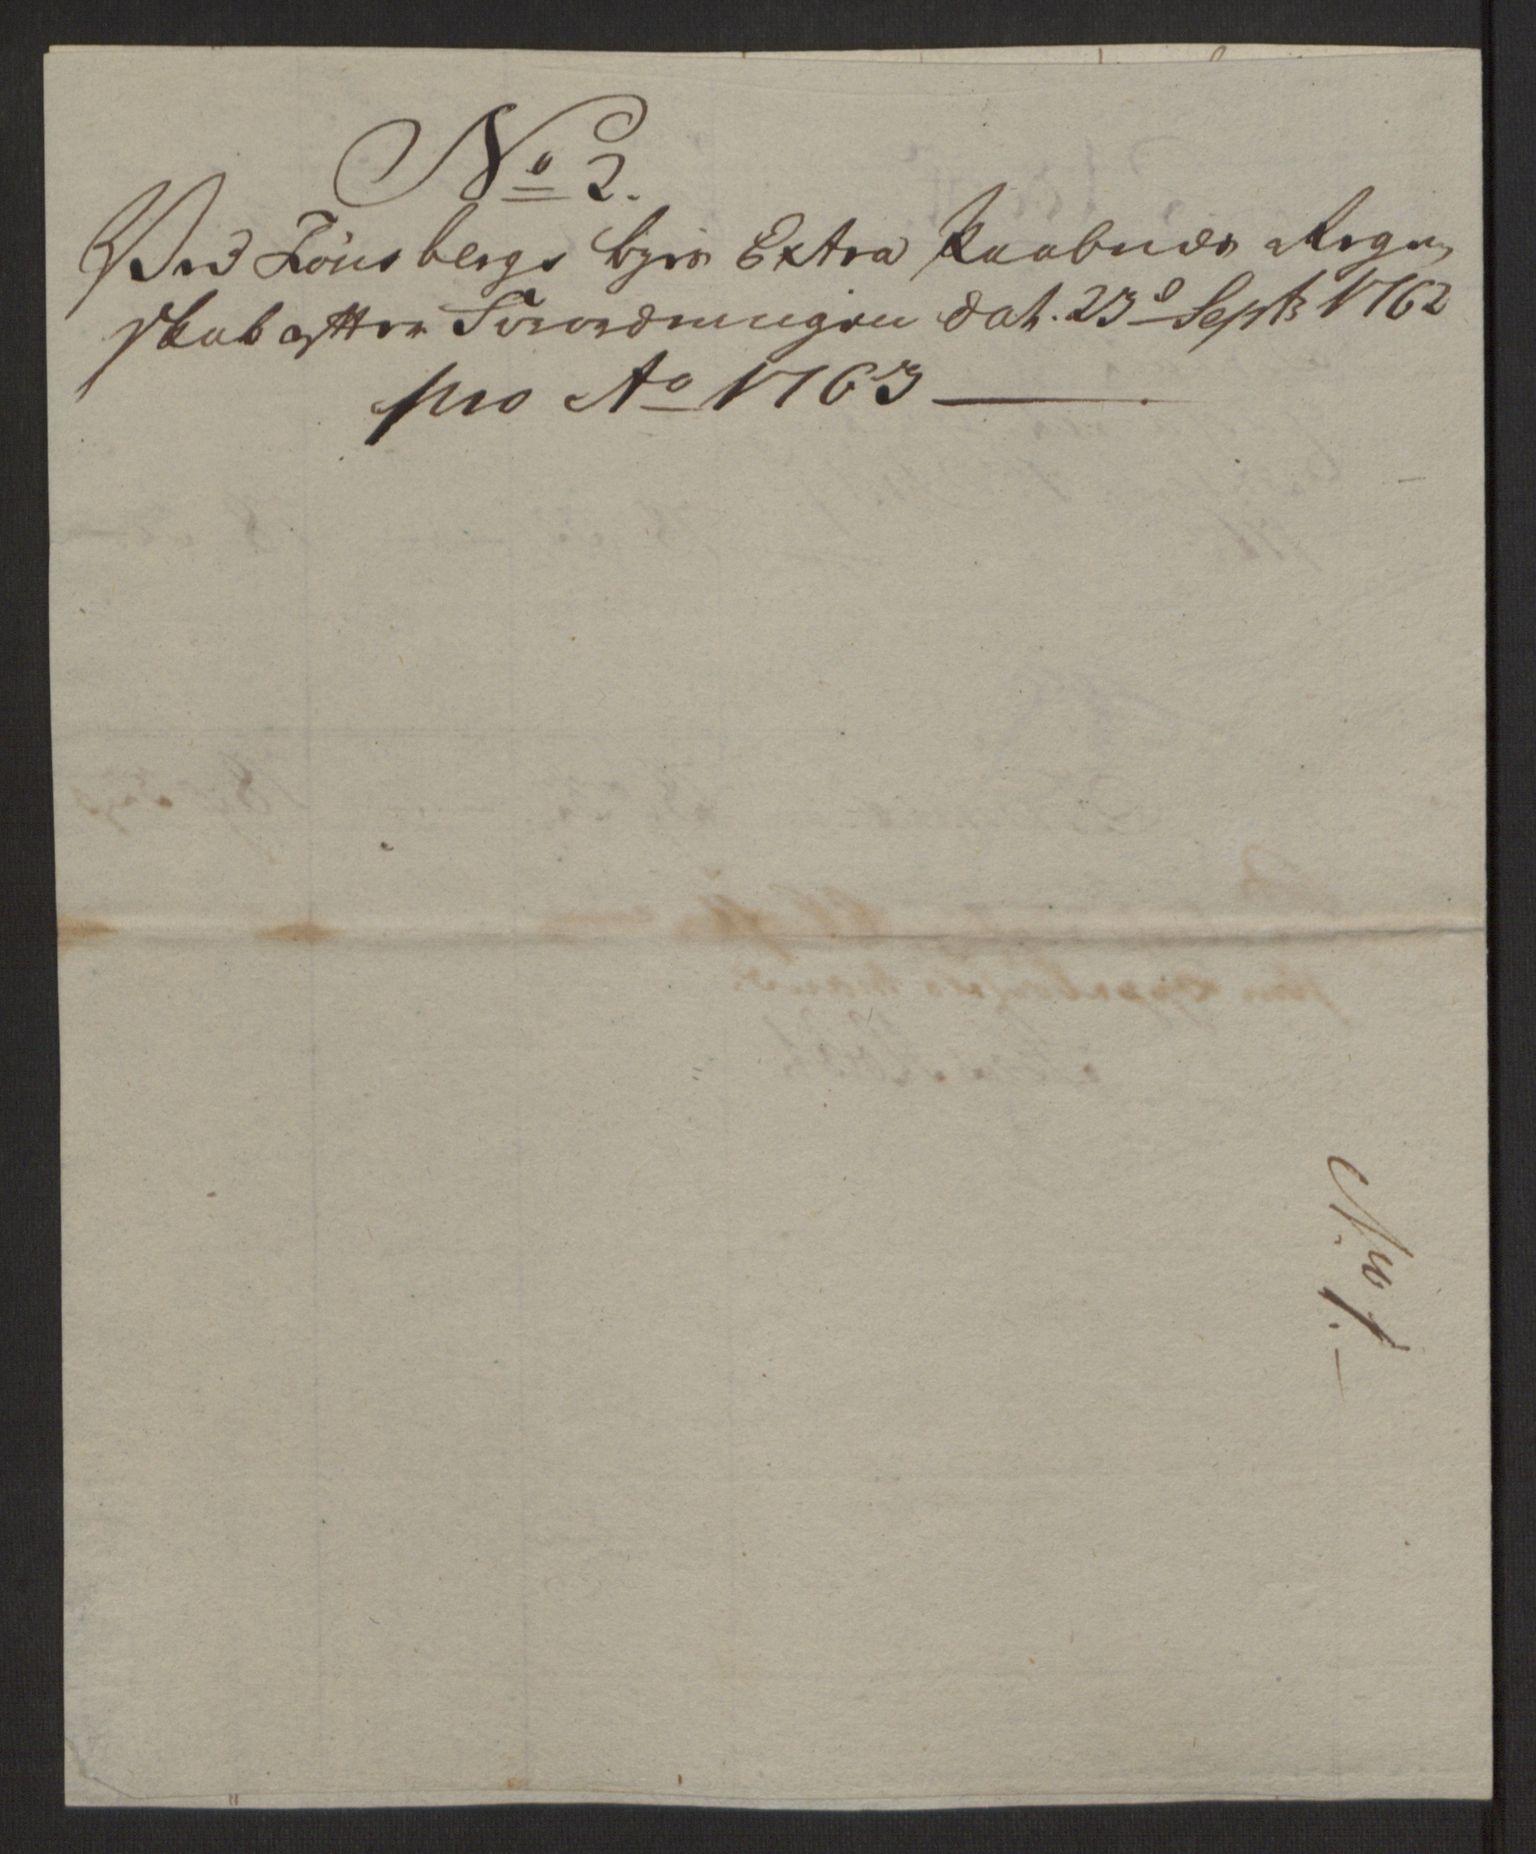 No 2.
Ved Tönsbergs byes Extra Skatters Regn,
skab efter Forordningen dat. 23d Septr 1762
pro Ao 1763
No 1.